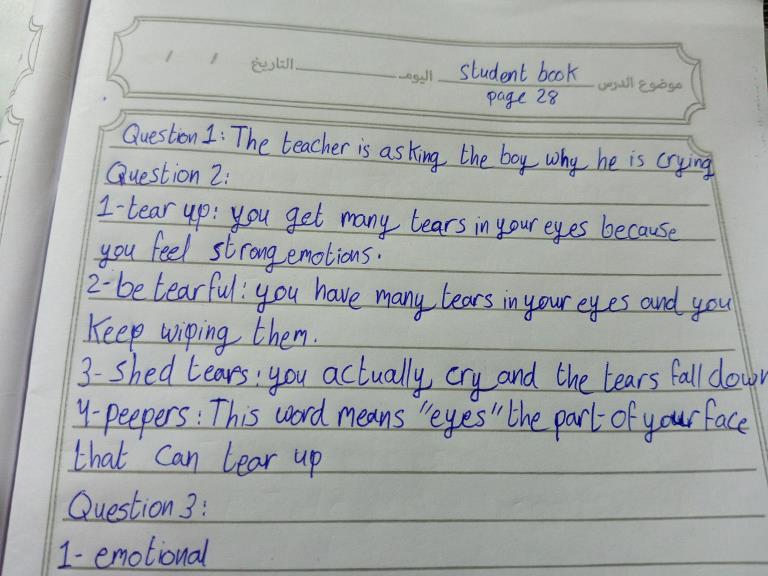 موضوع الدرس student book اليوم التاريخ / /
page 28
Question 1: The teacher is asking the boy why he is crying
Question 2:
1-tear up: you get many tears in your eyes because
you feel strong emotions.
2-be tearful: you have many tears in your eyes and you
Keep wiping them.
3-shed tears: you actually cry and the tears fall down
4-peepers: This word means "eyes" the part of your face
that can tear up
Question 3:
1- emotional